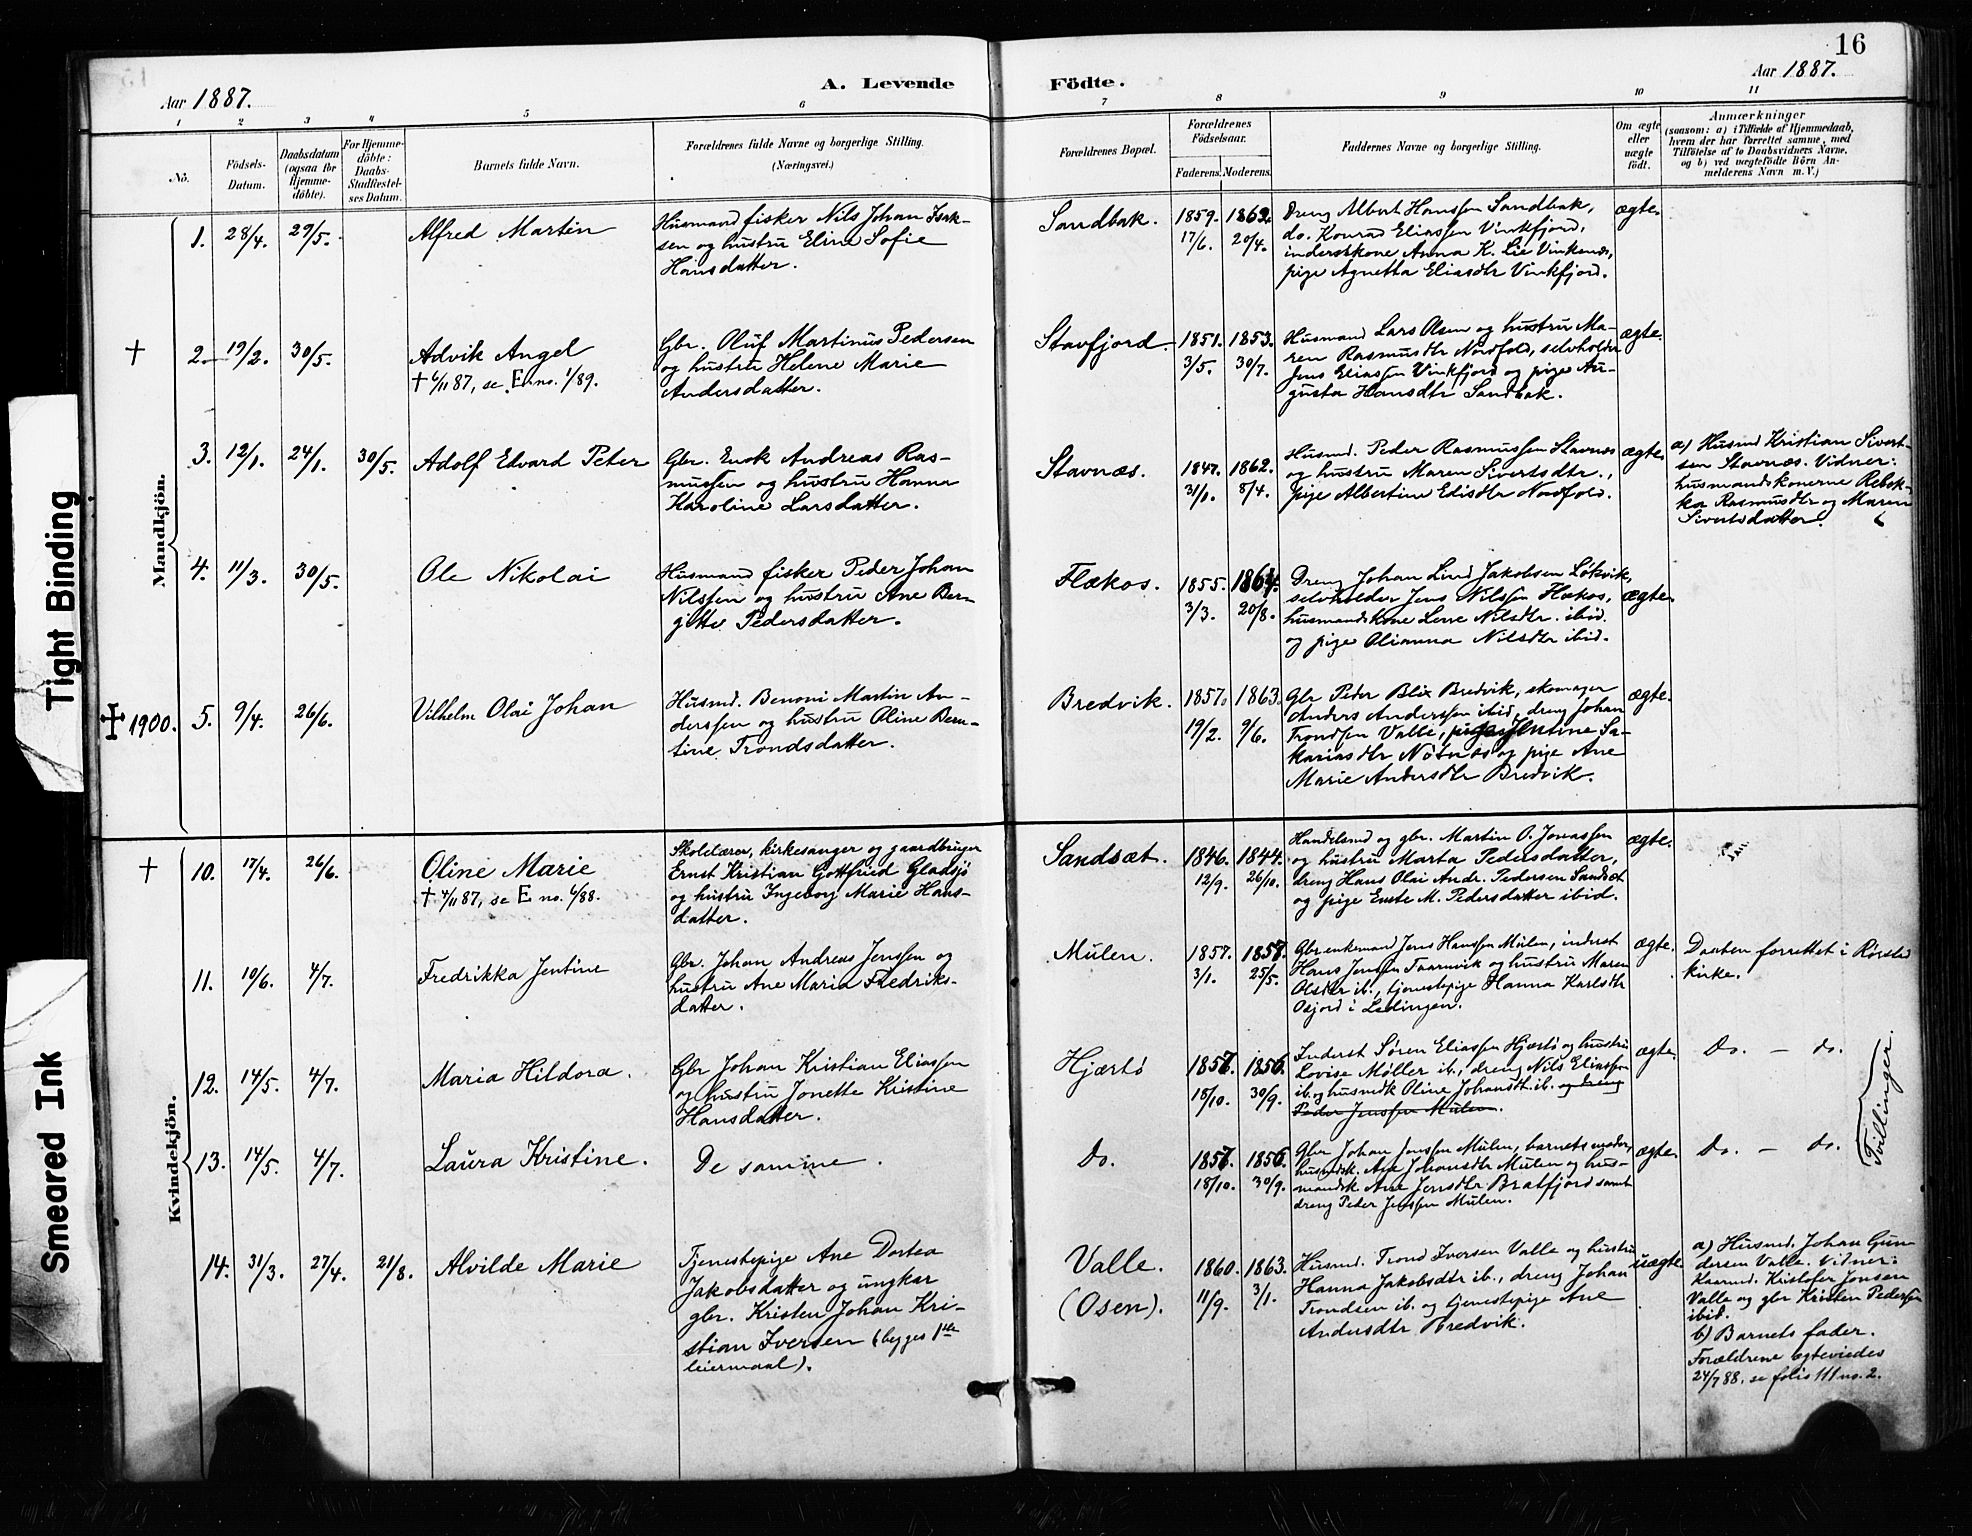 16
Aar 1887.
A. Levende Födte.
Aar 1887.
1 2 3 4 5 6 7 8 9 10 11
No.
Födsels-Datum.
Daabsdatum (ogsaa for Hjemmedöbte).
For Hjemmedöbte: Daabs-Stadfæstelses Datum.
Barnets fulde Navn.
Forældrenes fulde Navne og borgerlige Stilling.
(Næringsvei.)
Forældrenes Bopæl.
Forældrenes Födselsaar.
Faderens. Moderens.
Faddernes Navne og borgerlige Stilling.
Om ægte eller uægte født.
Anmærkninger
(saasom: a) i Tilfælde af Hjemmedaab,
hvem der har forrettet samme, med
Tilføtelse af to Daabsvidners Navne.
og b) ved uægtefødte Börn An-
melderens Navn m. V.)
Mandkjön.
1. 28/4. 29/5. Alfred Martin
Husmand fisker Nils Johan Isak-
sen og hustru Eline Sofie
Hansdatter.
Sandbak. 1859. 17/6. 1862. 20/4.
Dreng Albert Hanssen Sandbak,
do. Konrad Eliassen Vinkfjord,
inderstkone Anna K. Lie Vinkenes,
pige Agnetta Eliasdtr Vinkfjord.
ægte.
† 2. 19/2. 30/5. Advik Angel
† 6/11 87, se E no. 1/89.
Gbr. Oluf Martinus Pedersen
og hustru Helene Marie
Andersdatter.
Stavfjord 1851. 3/5. 1853. 30/7.
Husmand Lars Olsen og hustru Ma-
ren Rasmusdtr Nordfold, selvholder
Jens Eliassen Vinkfjord og pige Au-
gusta Hansdtr Sandbak.
ægte.
3. 12/1. 24/1. 30/5. Adolf Edvard Peter
Gbr. Enok Andreas Ras-
mussen og hustru Hanna
Karoline Larsdatter.
Stavnæs. 1847. 31/1. 1862. 8/4.
Husmd. Peder Rasmussen Stavnæs
og hustru Maren Sivertsdtr.,
pige Albertine Edisdtr Nordfold.
ægte.
a) Husmd Kristian Sivert-
sen Stavnæs. Vidner:
husmandskonerne Rebek-
ka Rasmusdtr og Maren
Sivertsdatter.
4. 11/3. 30/5. Ole Nikolai
Husmand fisker Peder Johan
Nilssen og hustru Ane Ber-
gitte Pedersdatter.
Flækos. 1855. 3/3. 1864. 20/8.
Dreng Johan Lind Jakobsen Løkvik,
selvholder Jens Nilssen Flækos,
husmandskone Lene Nilsdtr. ibid.
og pige Olianna Nilsdtr ibid.
ægte.
‡ 1900. 5. 9/4. 26/6. Vilhelm Olai Johan
Husmd. Benoni Martin An-
derssen og hustru Oline Bern-
tine Trondsdatter.
Bredvik. 1857. 19/2. 1863. 9/6.
Gbr Peder Blix Bredvik, skomager
Anders Anderssen ibid, dreng Johan
Trondsen Valle, pige Jentine Sa-
kariasdtr Nøtnes og pige Ane
Marie Andersdtr Bredvik.
ægte.
Kvindekjön.
† 10. 17/4. 26/6. Oline Marie
† 4/11 87, se E no. 6/88.
Skolelærer, kirkesanger og gaardbruger
Ernst Kristian Gottfried Gladsjø
og hustru Ingeborg Marie Hans-
datter.
Sandsæt. 1846. 12/9. 1844. 26/10.
Handelsmd og gbr. Martin O. Jonassen
og hustru Marta Pedersdatter,
dreng Hans Olai Andr. Pedersen Sandsæt
og pige Enste M. Pedersdatter ibid.
ægte.
11. 10/6. 4/7. Fredrikka Jentine
Gbr. Johan Andreas Jenssen og
hustru Ane Maria Fredriks-
datter.
Mulen. 1857. 3/1. 1857. 25/5.
Gbr enkemand Jens Hanssen Mulen, inderst
Hans Jenssen Taarnvik og hustru Maren
Olsdtr ib., tjenestepige Hanna Karlsdtr
Osjord i Lødingen.
ægte.
Daaben forrettet i Rørstad
kirke.
12. 14/5. 4/7. Maria Hildora.
Gbr Johan Kristian Eliassen
og hustru Jonette Kristine
Hansdatter.
Hjærtø 1857. 18/10. 1856. 30/9.
Inderst Søren Eliassen Hjærtø og hustru
Lovise Møller ib., dreng Nils Eliassen
ib. og husmdk Oline Johansdt. ib. og dreng
Peder Jenssen Mulen.
ægte.
Do. – do.
Tvillinger.
13. 14/5. 4/7. Laura Kristine.
De samme.
Do. 1857. 18/10. 1856. 30/9.
Gbr Johan Jenssen Mulen, barnets moder,
husmdsk. Ane Johansdtr Mulen og hus-
mandsk Ane Jensdtr Bratfjord samt
dreng Peder Jenssen Mulen.
ægte.
Do. – do.
14. 31/3. 27/4. 21/8. Alvilde Marie
Tjenestepige Ane Dortea
Jakobsdatter og ungkar
gbr. Kristen Johan Kri-
stian Iversen (begges 1ste
leiermaal).
Valle.
(Osen). 1860. 11/9. 1863. 3/1.
Husmd. Trond Iversen Valle og hustru
Hanna Jakobsdtr ib., dreng Johan
Trondsen ib. og tjenestepige Ane
Andersdtr Bredvik.
uægte.
a) Husmd. Johan Gun-
dersen Valle. Vidner:
Kaarmd. Kristofer Jonsen
Valle og gbr Kristen Pedersen
ibid.
b) Barnets fader.
Forældrene ægteviedes
24/7 88, se folio 111 no. 2.
Tight Binding
Smeared Ink